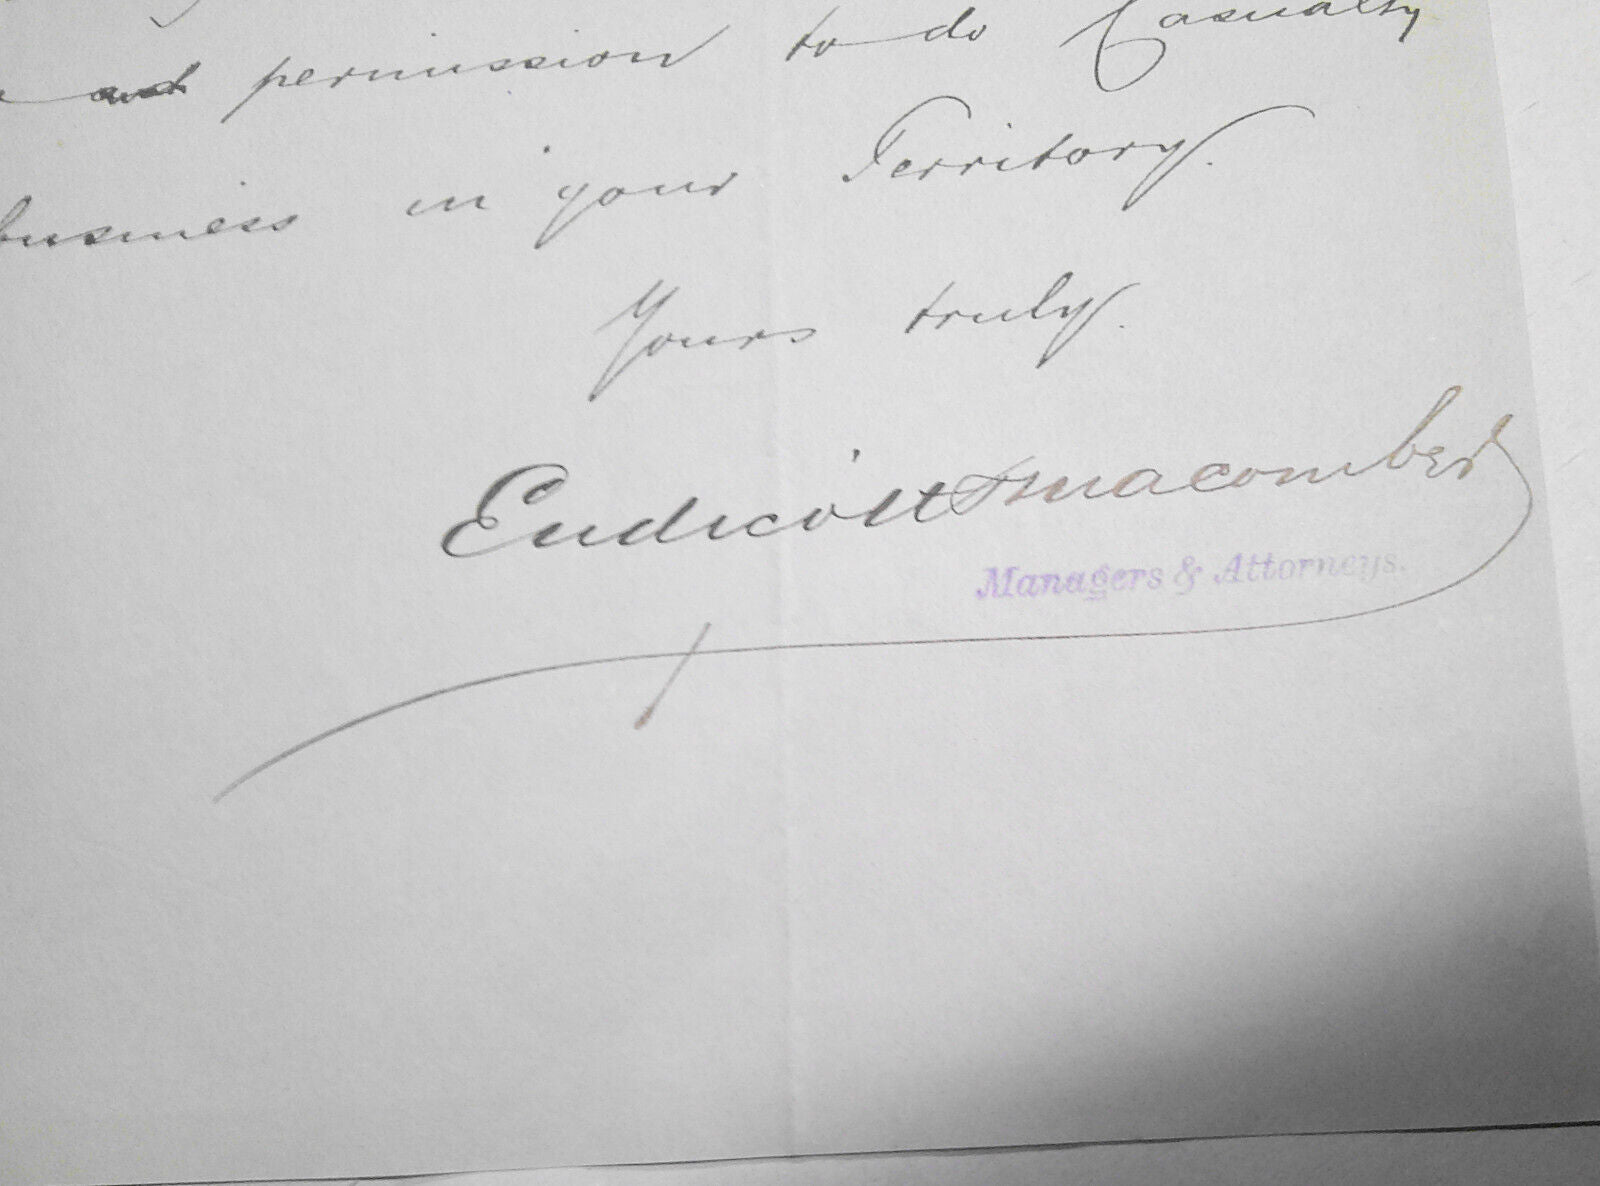 permission to do Casualty
business in your Territory.
Yours truly.
Endicott & Macomber
Managers & Attorneys.